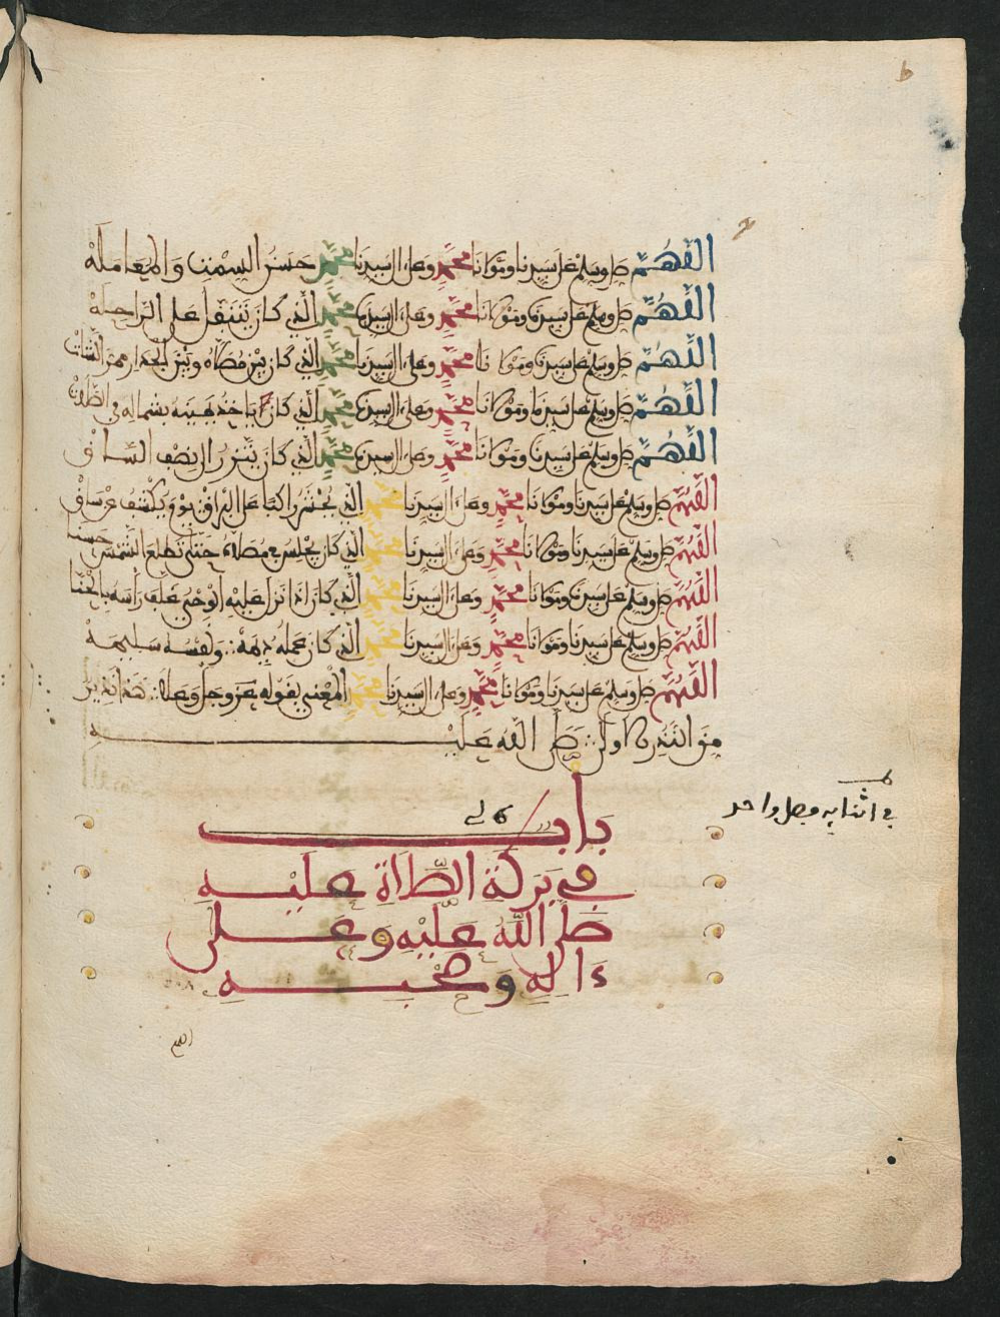 اللهم صل وسلم على سيدنا ومولانا محمد وعلى ءال سيدنا محمد حسن السمت والمعاملة
اللهم صل وسلم على سيدنا ومولانا محمد وعلى ءال سيدنا محمد الذي كان يتنفل على الراحلة
اللهم صل وسلم على سيدنا ومولانا محمد وعلى ءال سيدنا محمد الذي كان بين مصلاه وبين الجدار ممر الشاة
اللهم صل وسلم على سيدنا ومولانا محمد وعلى ءال سيدنا محمد الذي كان ياخذ يمينه بشماله في الصلاة
اللهم صل وسلم على سيدنا ومولانا محمد وعلى ءال سيدنا محمد الذي كان يتزر الى نصف الساق
اللهم صل وسلم على سيدنا ومولانا محمد وعلى ءال سيدنا محمد الذي يحشر راكبا على البراق يوم يكشف عن ساق
اللهم صل وسلم على سيدنا ومولانا محمد وعلى ءال سيدنا محمد الذي كان يجلس في مصلاه حتى تطلع الشمس حسنا
اللهم صل وسلم على سيدنا ومولانا محمد وعلى ءال سيدنا محمد الذي كان اذا نزل عليه الوحي غلف راسه بالحنا
اللهم صل وسلم على سيدنا ومولانا محمد وعلى ءال سيدنا محمد الذي كان عمله ديمة ونفسه سليمة
اللهم صل وسلم على سيدنا ومولانا محمد وعلى ءال سيدنا محمد المعني بقوله عز وجل وعلا هذا نذير
من النذر الاولى صلى الله عليه
باب
في بركة الصلاة عليه
صلى الله عليه وعلى
ءاله وصحبه
في اثنايه وصل واحد